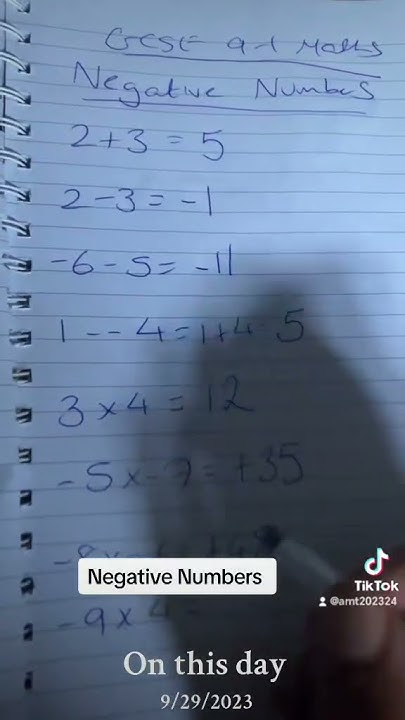 GCSE 9-1 Maths
Negative Numbers
2+3 = 5
2-3 = -1
-6-5 = -11
1--4 = 1+4 5
3×4 = 12
-5×-7 = +35
Negative Numbers
-9×4 =
TikTok
@amt202324
On this day
9/29/2023